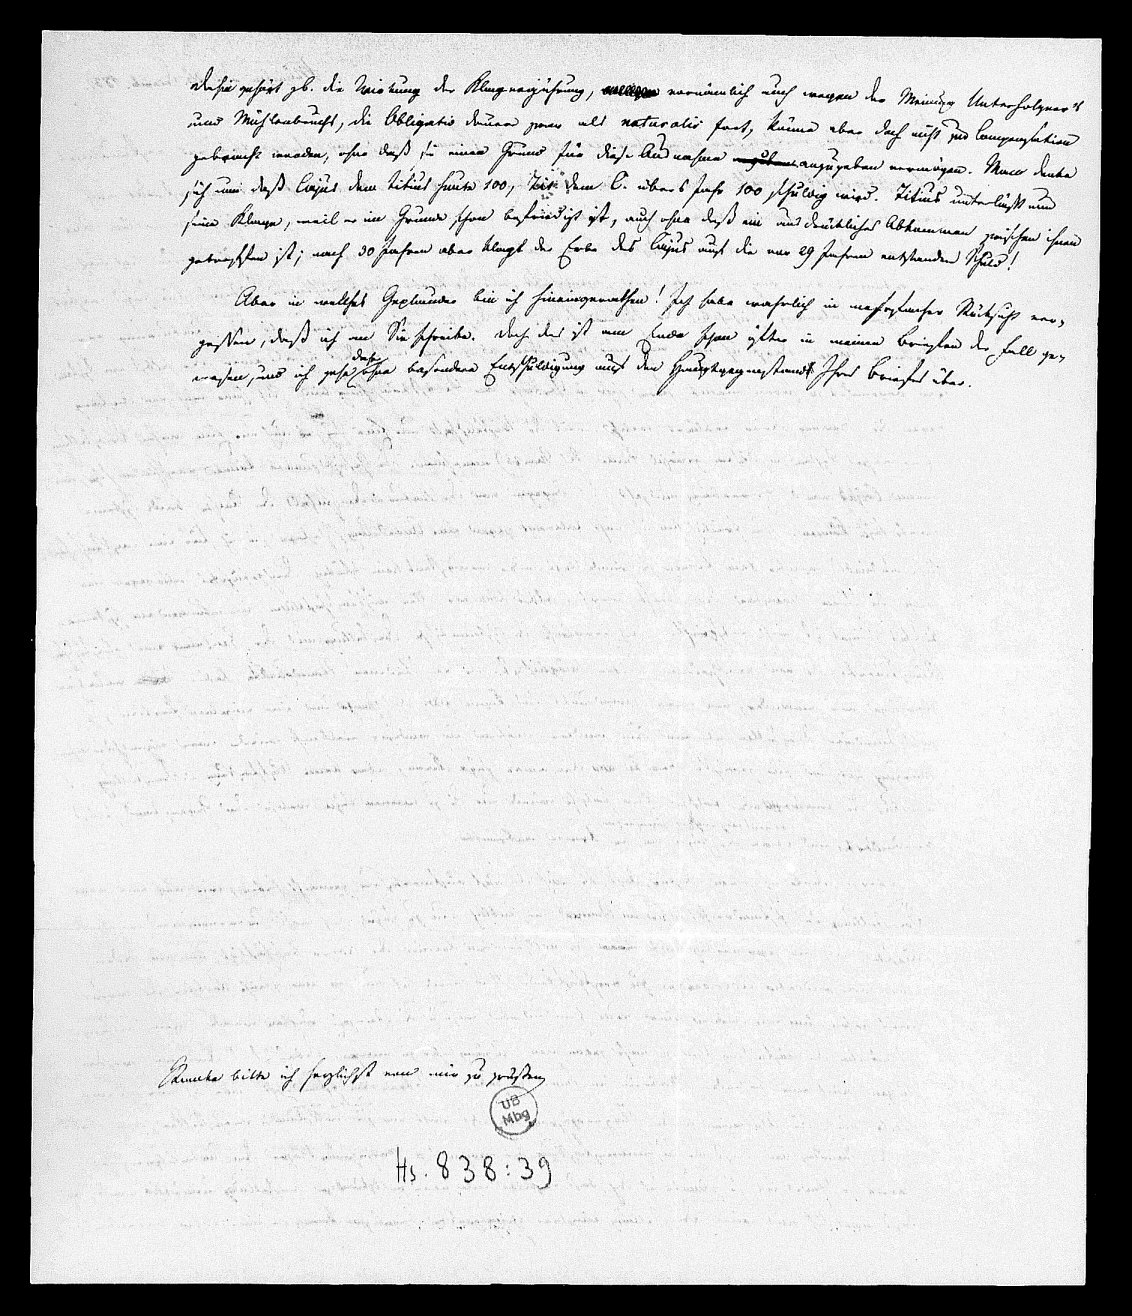 Dahin gehört zb. die Wirkung der Klagverjährung, vornämlich auch wegen der Meinung Unterholzner's
und Mühlenbruchs, die Obligatio dauere zwar als naturalis fort, könne aber doch nicht zur Compensation
gebraucht werden, ohne daß sie einen Grund für diese Ausnahme anzugeben vermögen. Man denke
sich nun daß Cajus dem Titius heute 100, Tit. dem C. übers Jahr 100 schuldig wird. Titius unterläßt nun
seine Klage, weil er im Grunde schon befriedigt ist, auch ohne daß ein ausdrückliches Abkommen zwischen ihnen
getroffen ist; nach 30 Jahren aber klagt der Erbe des Cajus auf die vor 29 Jahren entstandene Schuld!
Aber in welches Geplauder bin ich hineingerathen! Ich habe wahrlich in mehrfacher Rücksicht ver-
gessen, daß ich an Sie schreibe. Doch das ist am Ende schon öfter in meinen Briefen der Fall ge-
wesen, und ich gehe daher ohne besondere Entschuldigung auf den Hauptgegenstand Ihres Briefes über.
bitte ich herzlichst von mir zu grüßen
UB
Mbg
Hs. 838:39